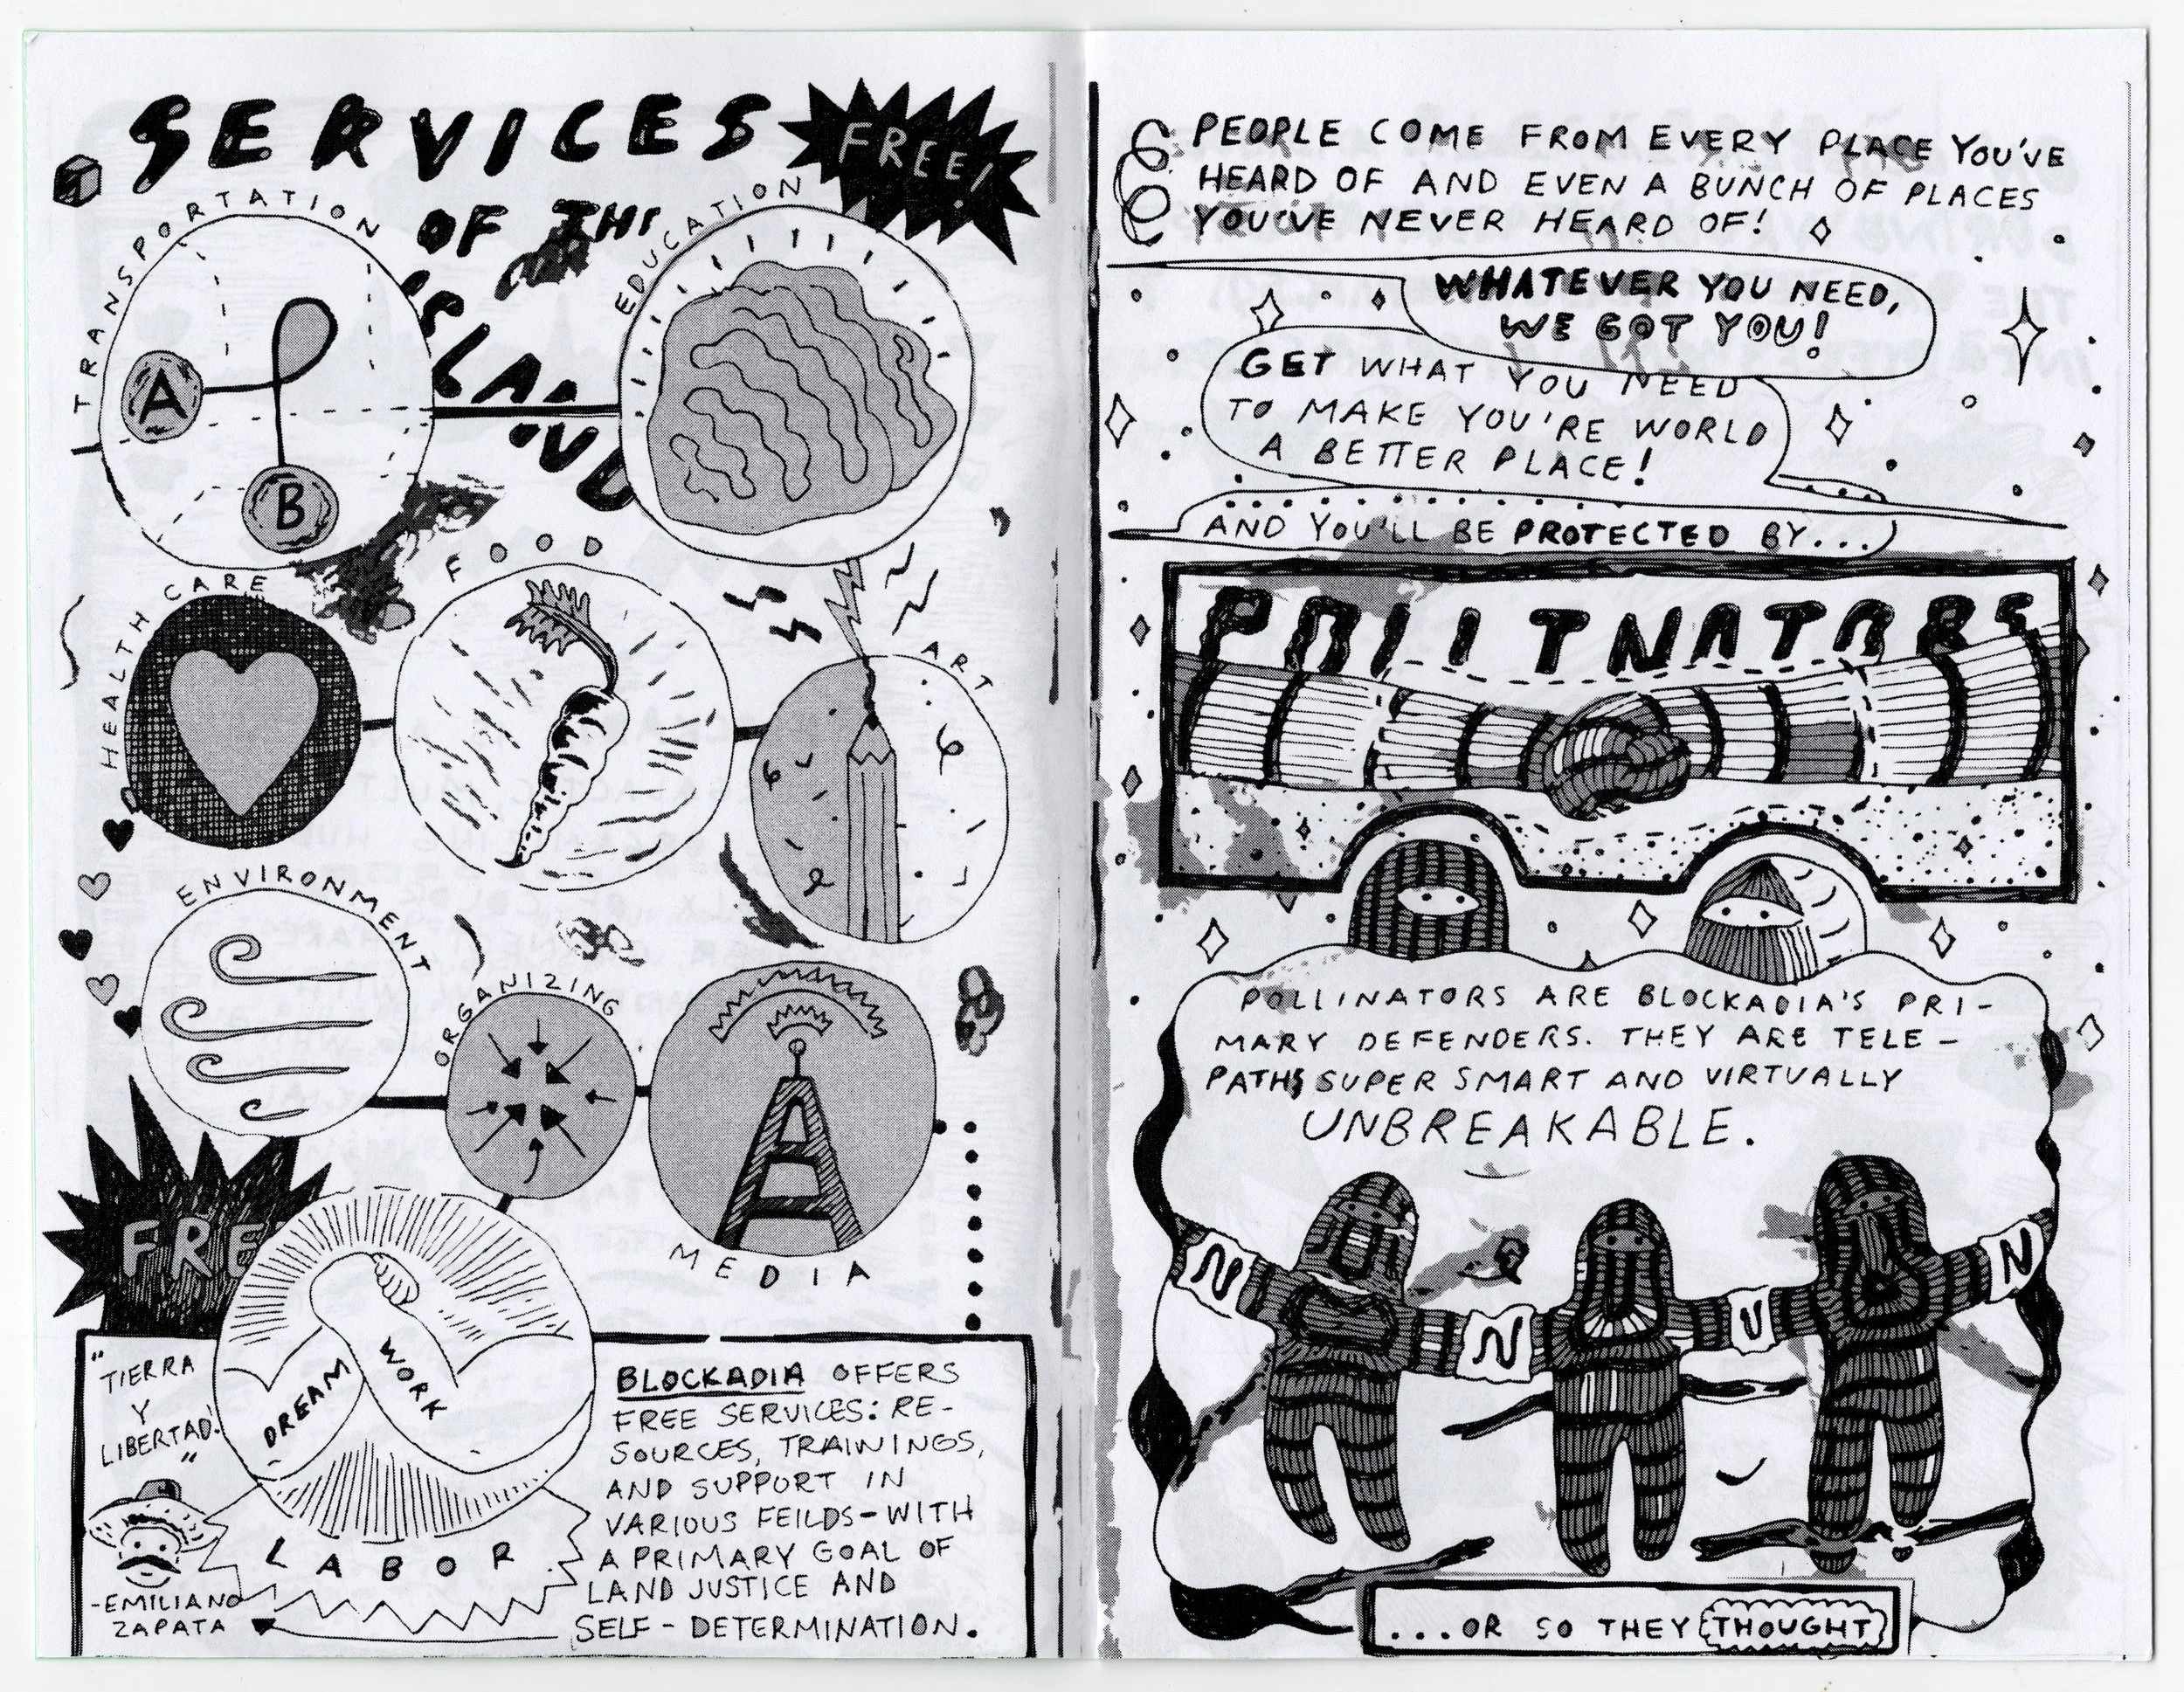 SERVICES
FREE!
OF THE
ISLAND
TRANSPORTATION
A
B
EDUCATION
HEALTH CARE
FOOD
ART
ENVIRONMENT
ORGANIZING
MEDIA
FREE
DREAM
WORK
LABOR
"TIERRA
Y
LIBERTAD!"
-EMILIANO
ZAPATA
BLOCKADIA OFFERS
FREE SERVICES: RE-
SOURCES, TRAININGS,
AND SUPPORT IN
VARIOUS FEILDS-WITH
A PRIMARY GOAL OF
LAND JUSTICE AND
SELF-DETERMINATION.
PEOPLE COME FROM EVERY PLACE YOU'VE
HEARD OF AND EVEN A BUNCH OF PLACES
YOU'VE NEVER HEARD OF!
WHATEVER YOU NEED,
WE GOT YOU!
GET WHAT YOU NEED
TO MAKE YOU'RE WORLD
A BETTER PLACE!
AND YOU'LL BE PROTECTED BY...
POLLINATORS
POLLINATORS ARE BLOCKADIA'S PRI-
MARY DEFENDERS. THEY ARE TELE-
PATHS, SUPER SMART AND VIRTUALLY
UNBREAKABLE.
N N U N
...OR SO THEY THOUGHT